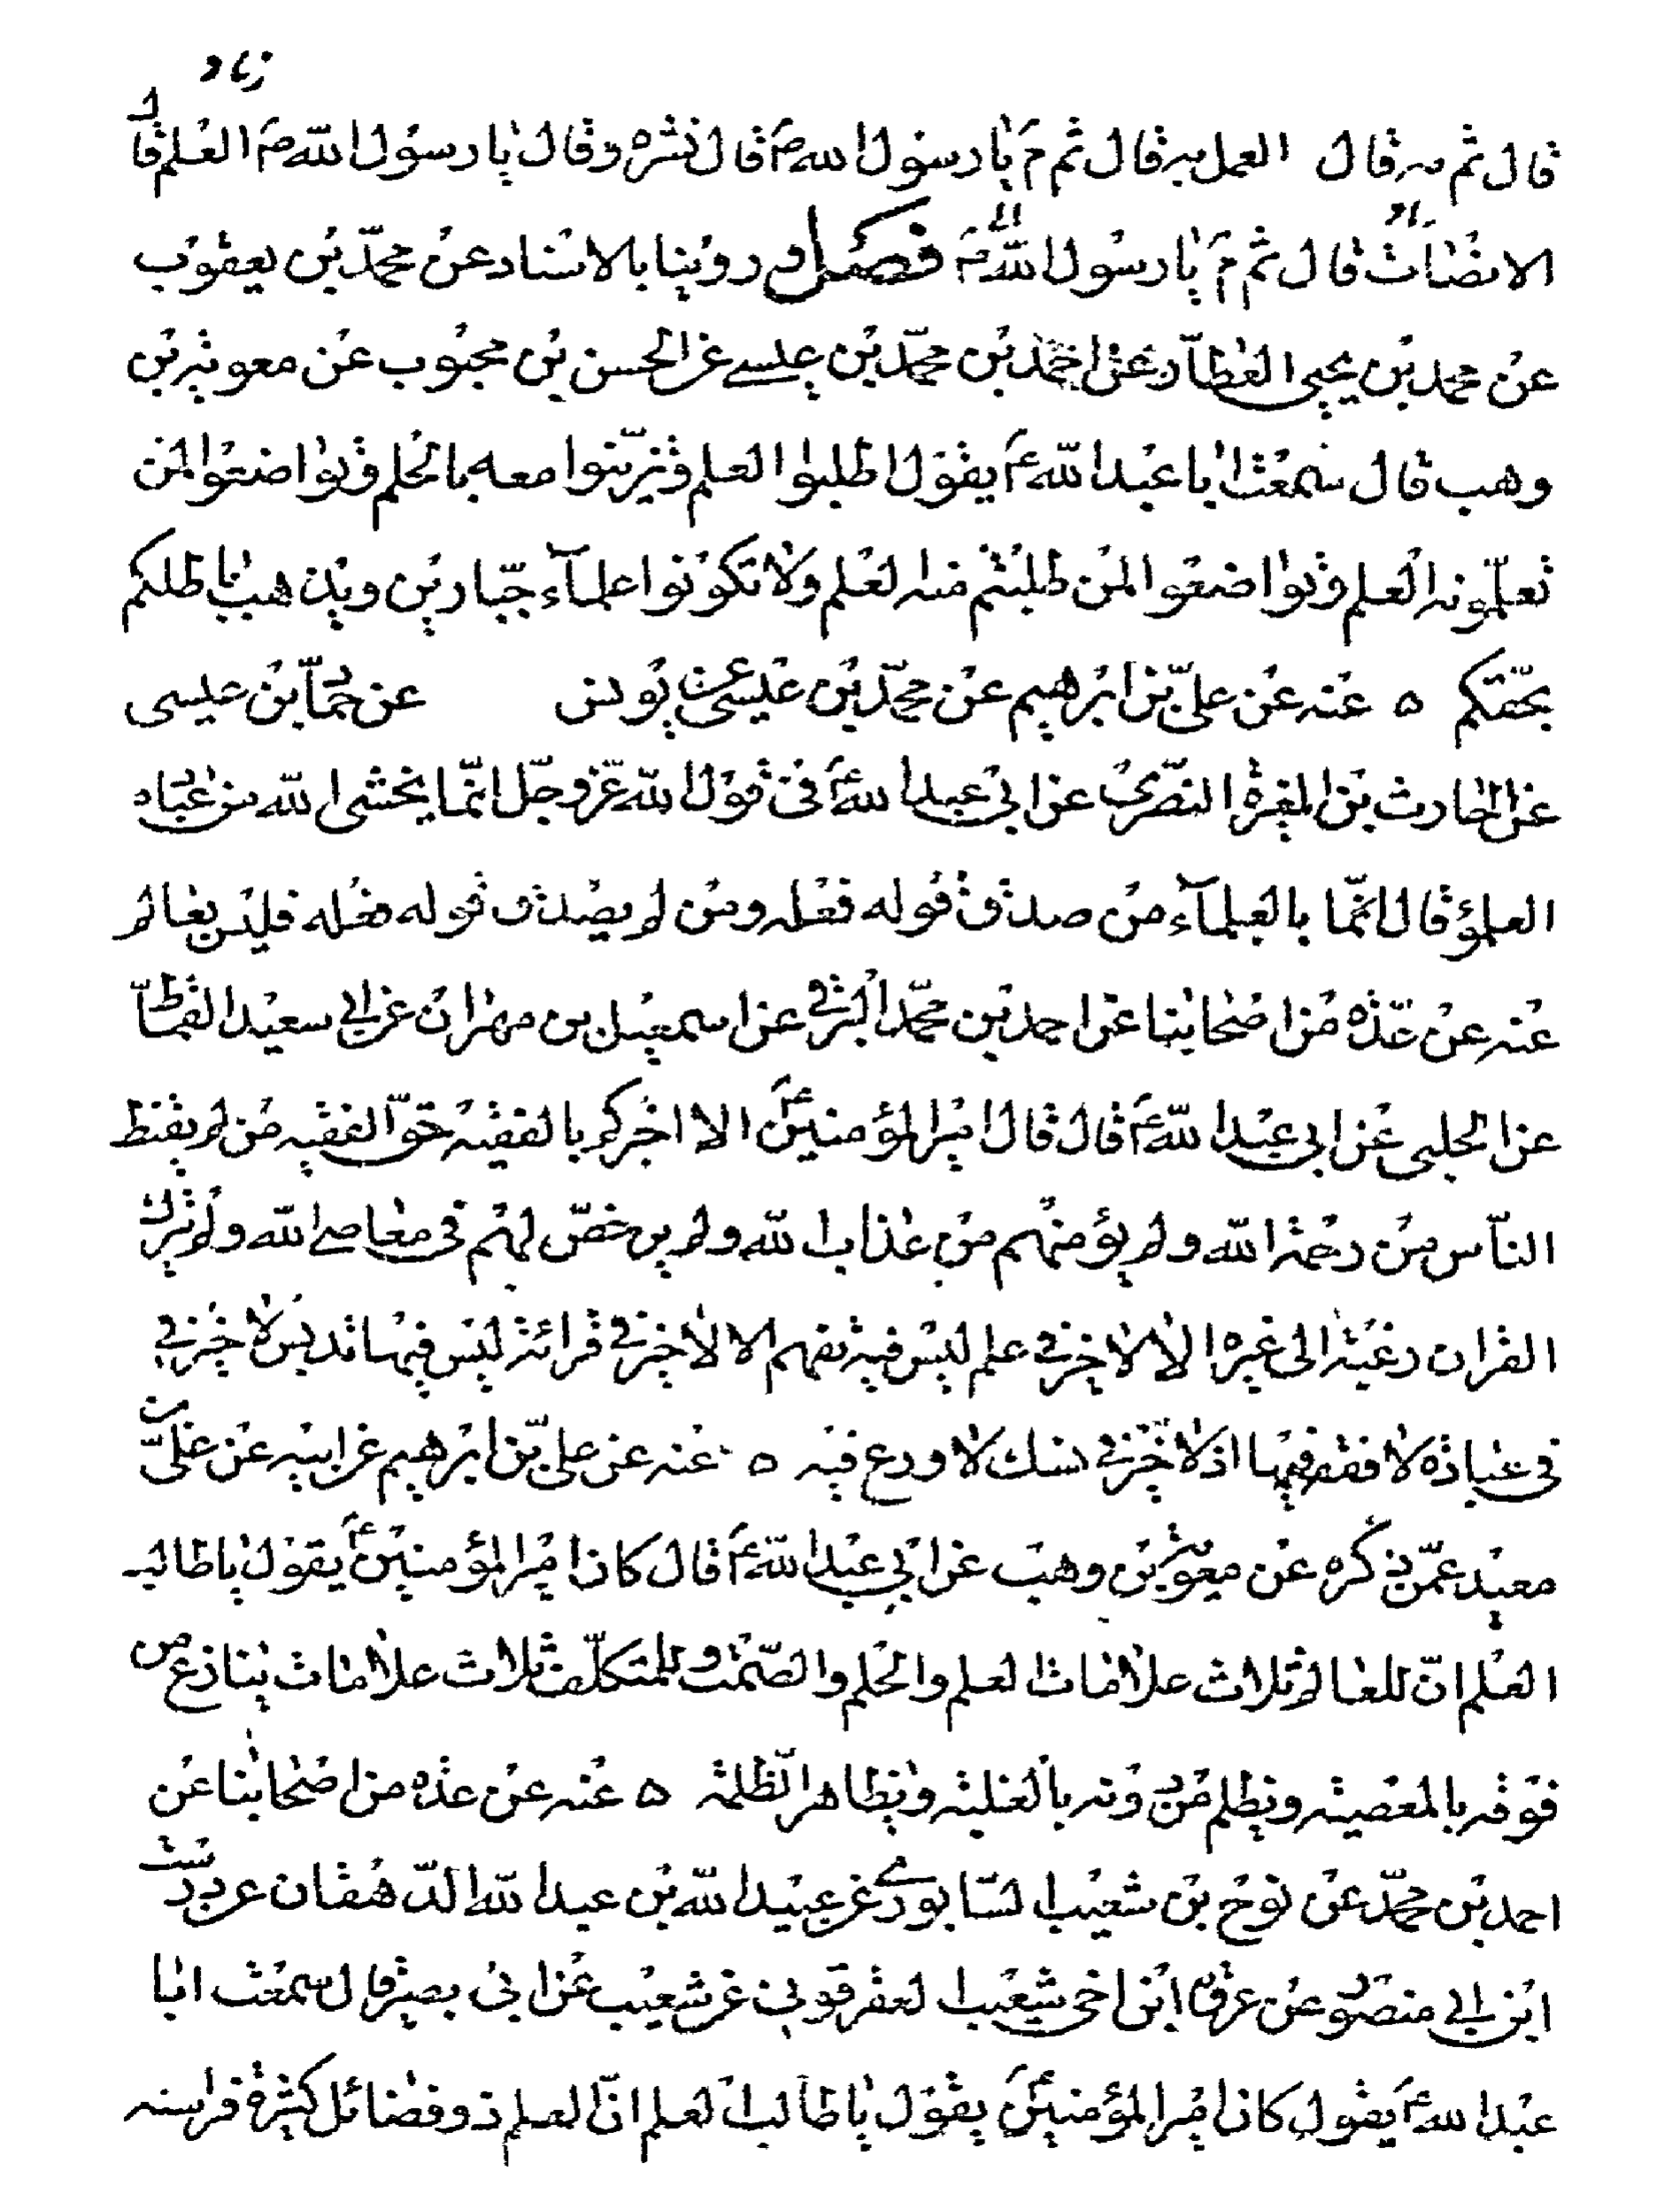 قال ثم مه قال العمل به قال ثم مه يا رسول الله قال نشره وقال يا رسول الله ما العلم قال
الانصات قال ثم مه يا رسول الله فصل روينا بالاسناد عن محمد بن يعقوب
عن محمد بن يحيى العطار عن احمد بن محمد بن عيسى عن الحسن بن محبوب عن معوية بن
وهب قال سمعت ابا عبد الله ع يقول اطلبوا العلم وتزيّنوا معه بالحلم وتواضعوا لمن
تعلّمونه العلم وتواضعوا لمن طلبتم منه العلم ولا تكونوا علمآء جبّارين ويذهب باطلكم
بحقّكم ه عنه عن علىّ بن ابرهيم عن محمّد بن عيسى عن يونس عن حمّاد بن عيسى
عن الحارث بن المغيرة النصرى عن ابى عبد الله ع فى قول الله عزّ وجلّ انّما يخشى الله من عباده
العلمؤ قال انّما بالعلمآء من صدق قوله فعله ومن لم يصدق قوله فعله فليس بعالم
عنه عن عدّة من اصحابنا عن احمد بن محمّد البرقى عن اسمعيل بن مهران عن ابى سعيد القمّاط
عن الحلبى عن ابى عبد الله ع قال قال امير المؤمنين ع الا اخبركم بالفقيه حقّ الفقيه من لم يقنط
النّاس من رحمة الله ولم يؤمنهم من عذاب الله ولم يرخصّ لهم فى معاصى الله ولم يترك
القران رغبة الى غيره الا لا خير فى علم ليس فيه تفهم الا لا خير فى قرائة ليس فيها تدبر لا خير فى
فى عبادة لا فقه فيها اذ لا خير فى نسك لا ورع فيه ه عنه عن علىّ بن ابرهيم عن ابيه عن علىّ بن
معبد عمّن ذكره عن معوية بن وهب عن ابى عبد الله ع قال كان امير المؤمنين ع يقول يا طالب
العلم انّ للعالم ثلاث علامات العلم والحلم والصّمت وللمتكلّف ثلاث علامات ينازع من
فوقه بالمعصية ويظلم من دونه بالغلبة ويظاهر الظّلمة ه عنه عن عدة من اصحابنا عن
احمد بن محمّد عن نوح بن شعيب النيسابورى عن عبيد الله بن عبد الله الدّهقان عن درست
ابن ابى منصور عن عروة ابن اخى شعيب العقرقوبى عن شعيب عن ابى بصير قال سمعت ابا
عبد الله ع يقول كان امير المؤمنين ع يقول يا طالب العلم انّ العلم ذو فضائل كثيرة فراسه